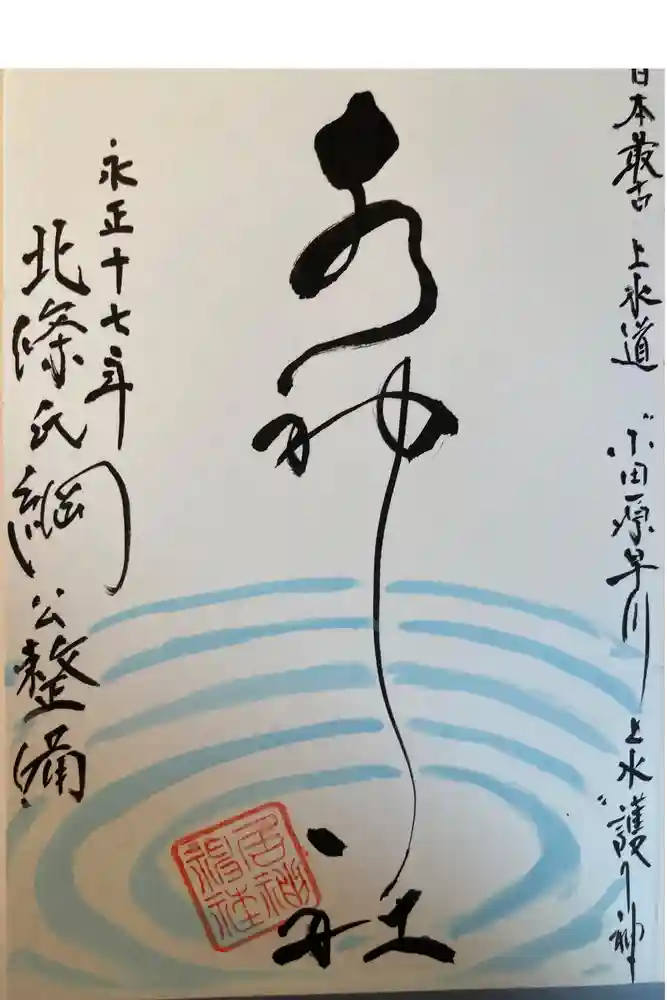 日本最古 上水道 〝小田原早川上水〟護り神
水神社
永正十七年
北條氏綱公整備
居神
神社